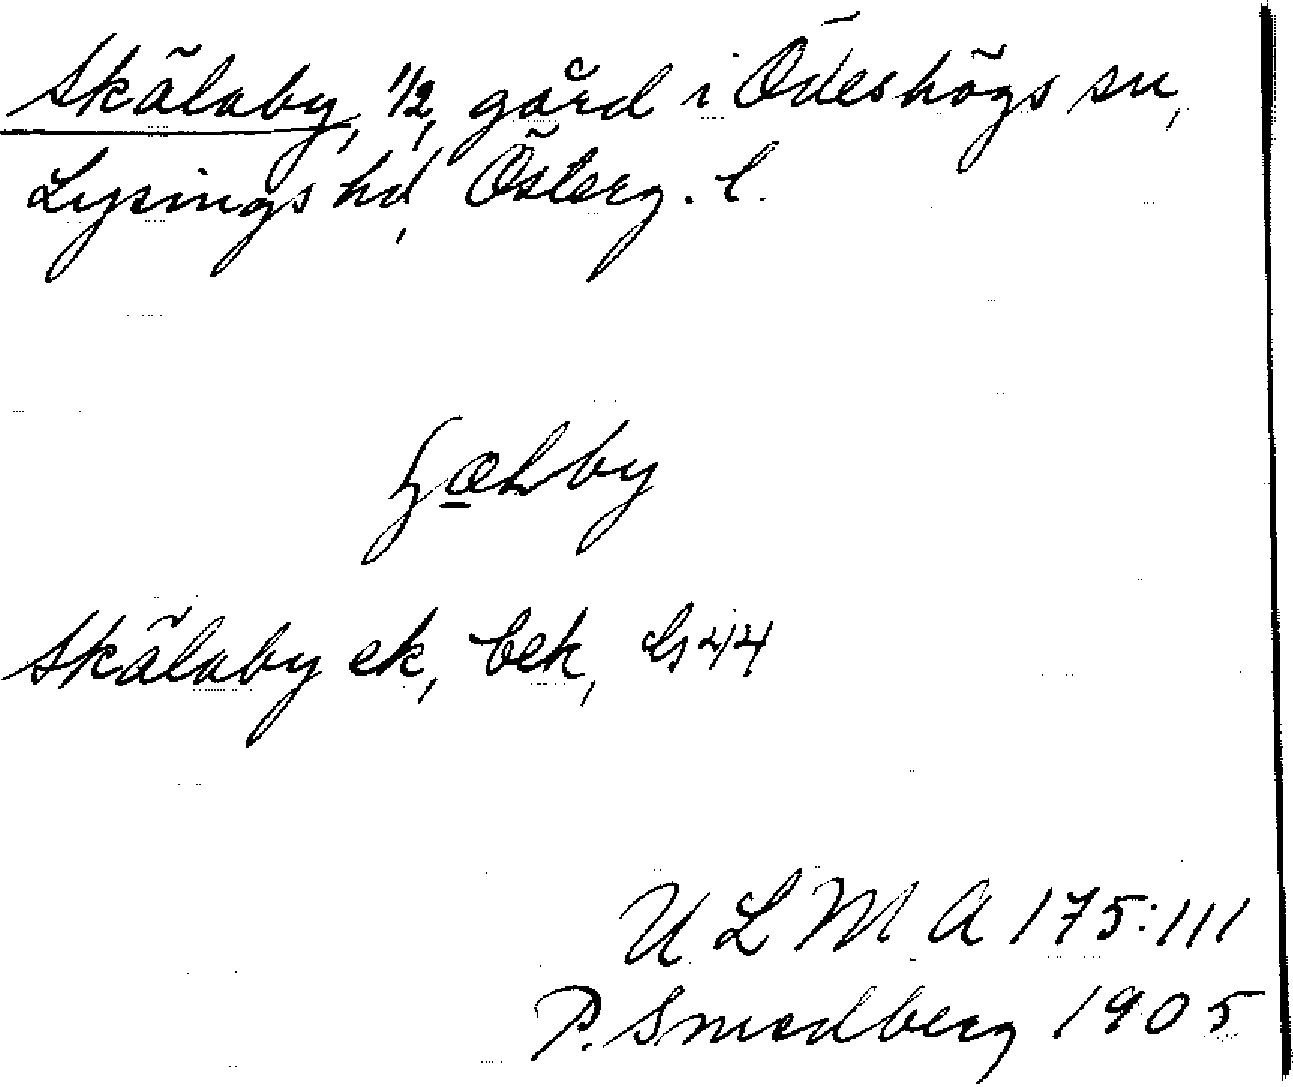 Skälaby, 1/2, gård i Ödeshögs sn,
Lysings hd, Österg. l.
Skälaby ek, bek,
U L M A 175:111
P. Smedberg 1905